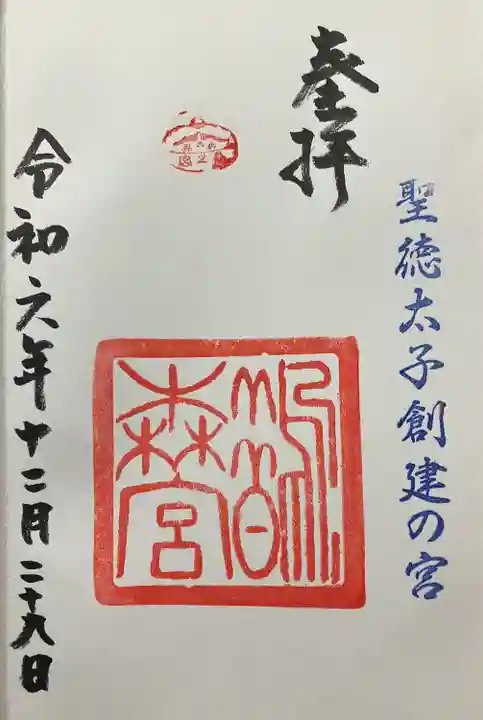 奉拝
聖徳太子創建の宮
鵲森宮
令和六年十二月二十九日